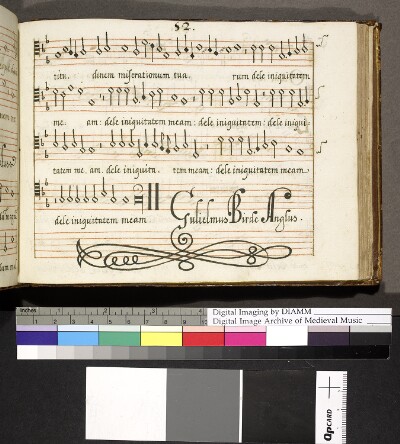 52.
titu. dinem miserationum tua. rum dele iniquitatem
me. am: dele iniquitatem meam: dele iniquitatem meam: dele iniqui-
tatem me. am. dele iniquita. tem meam: dele iniquitatem meam
dele iniquitatem meam Gulielmus Birde Anglus.
inches 1 2 3
Digital Imaging by DIAMM
Digital Image Archive of Medieval Music
QPCARD